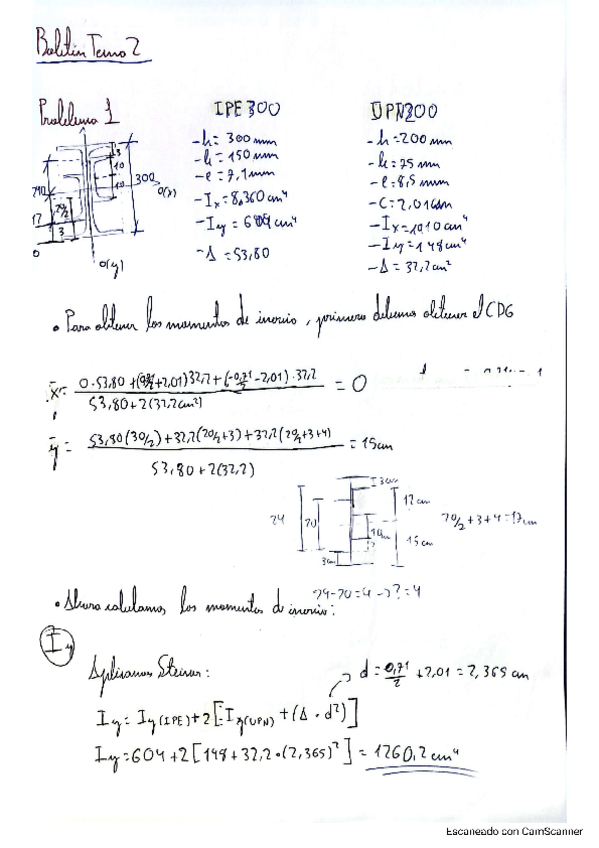 Boletín Tema 2
Problema 1
IPE 300
UPN 200
- h = 300 mm
- b = 150 mm
- e = 7,1 mm
- Ix = 8.360 cm⁴
- Iy = 604 cm⁴
- A = 53,80
- h = 200 mm
- b = 75 mm
- e = 8,5 mm
- C = 2,01 cm
- Ix = 1910 cm⁴
- Iy = 148 cm⁴
- A = 32,2 cm²
3
10
10
300
0(x)
240
20/2
17
3
0
0(y)
• Para obtener los momentos de inercio, primero debemos obtener el CDG
x̄ = 0·53,80 + (0,71/2+2,01)32,2 + (-0,71/2-2,01)·32,2 / 53,80+2(32,2cm²) = 0
ȳ = 53,80(30/2)+32,2(20/2+3)+32,2(20/2+3+4) / 53,80+2(32,2) = 15cm
3cm
12 cm
24
20
10cm
15 cm
3cm
20/2+3+4=17cm
24-20=4 → ?=4
• Ahora calculamos los momentos de inercio:
Iy
Aplicamos Steiner:
d = 0,71/2 + 2,01 = 2,365 cm
Iy = Iy(IPE) + 2[Iy(UPN) + (A · d²)]
Iy = 604 + 2[148 + 32,2·(2,365)²] = 1260,2 cm⁴
Escaneado con CamScanner